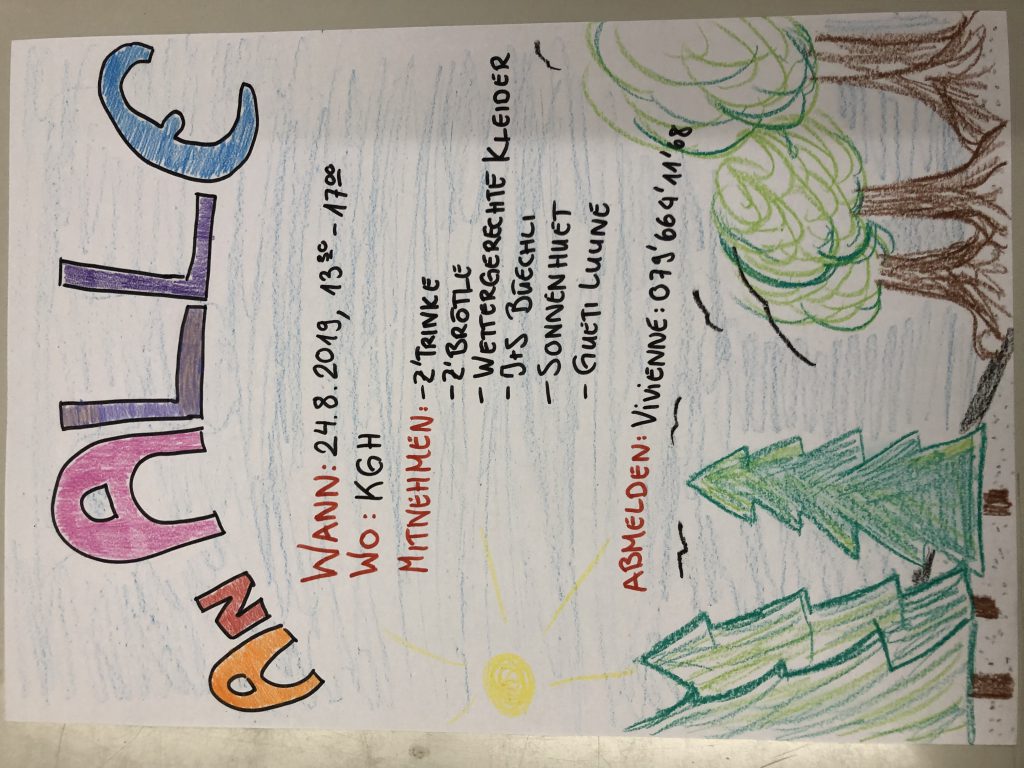 AN ALLE
WANN: 24.8.2019, 13³⁰ - 17⁰⁰
WO: KGH
MITNEHMEN: - Z'TRINKE
- Z'BRÖTLE
- WETTERGERECHTE KLEIDER
- J+S BÜECHLI
- SONNENHUET
- GUETI LUUNE
ABMELDEN: VIVIENNE: 079'664'11'68